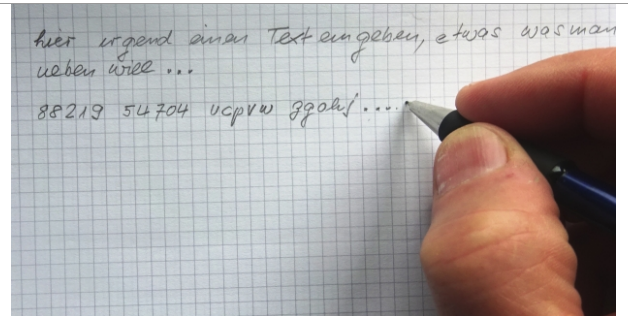 hier irgend einen Text eingeben, etwas was man
ueben will ...
88219 54704 vcpvw zgohj .....